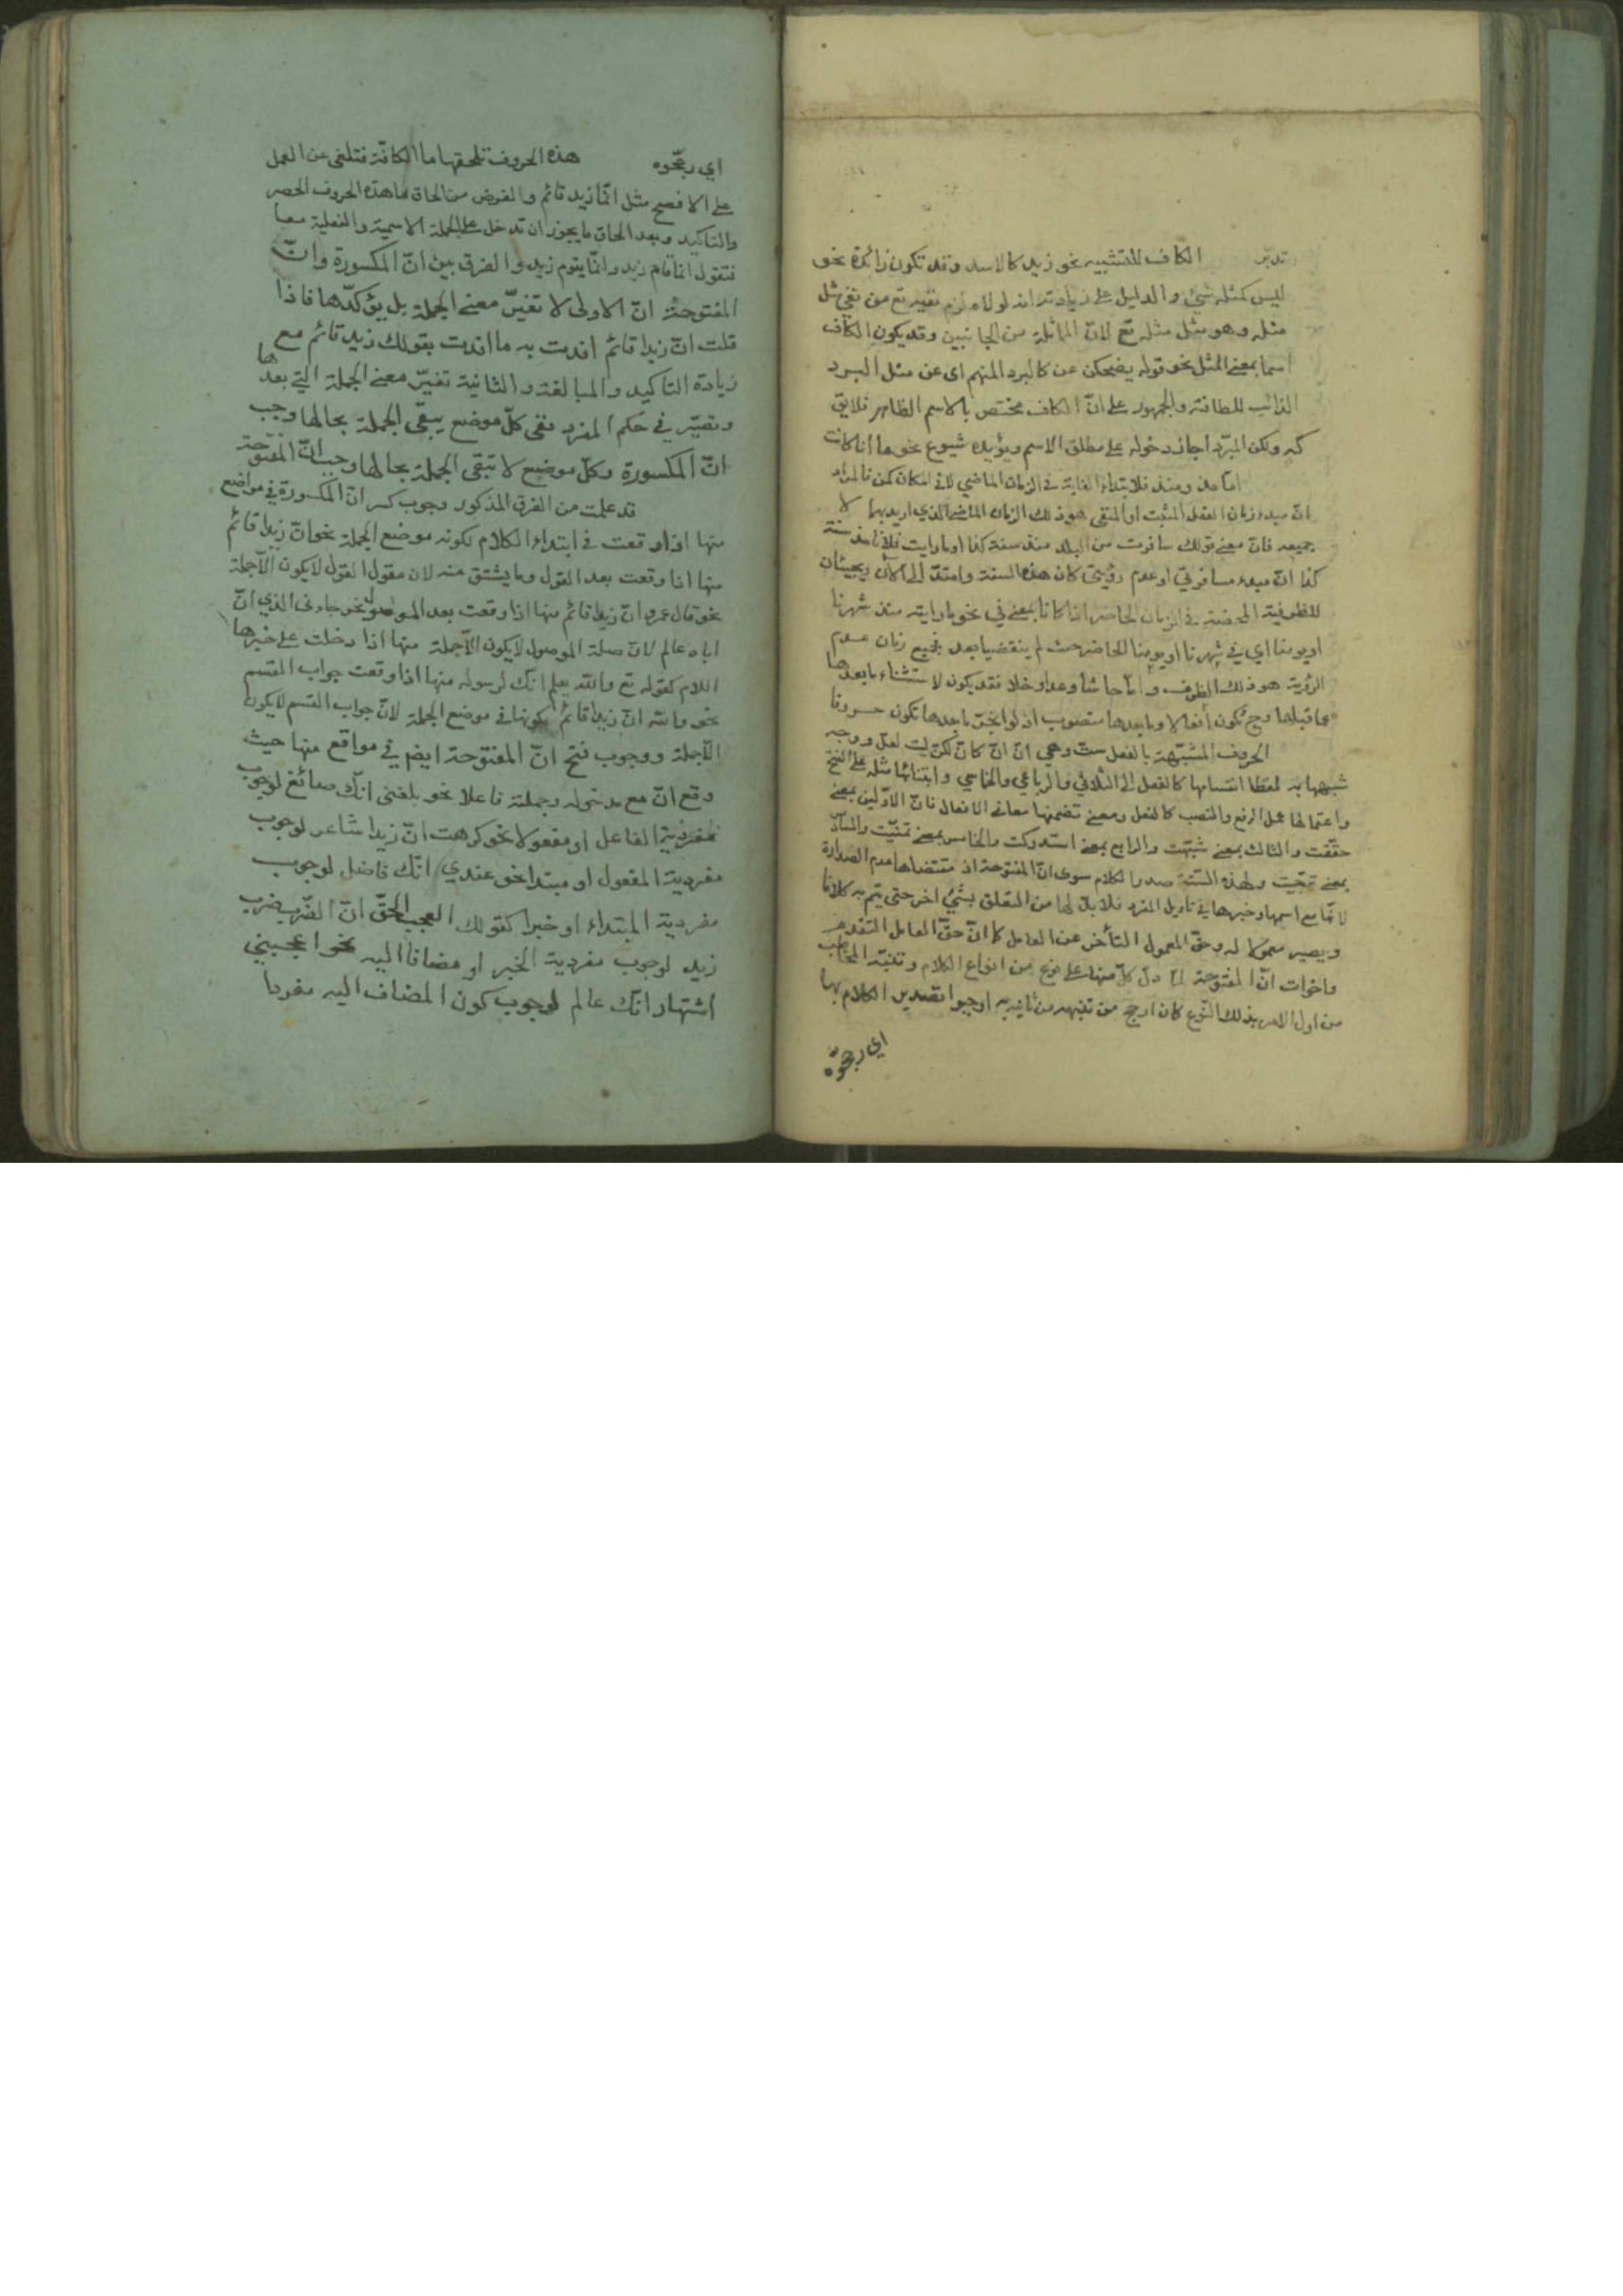 تدبّر الكاف للتشبيه نحو زيد كالاسد وقد تكون زائدة نحو
ليس كمثله شيء والدليل على زيادته انه لولاه لزم نفيه تع من نفي مثل
مثله وهو مثل مثله تع لانّ المماثلة من الجانبين وقد يكون الكاف
اسما بمعنى المثل نحو قوله يضحكن عن كالبرد المنهم اى عن مثل البرد
الذائب للطافته والجمهور على انّ الكاف مختص بالاسم الظاهر فلايق
كه ولكن المبرّد اجاز دخوله على مطلق الاسم ويؤيده شيوع نحو ما انا كانت
امّا مذ ومنذ فلابتداء الغاية في الزمان الماضي لا في المكان كمن فالمراد
انّ مبدء زمان الفعل المثبت او المنفى هو ذلك الزمان الماضى الذي اريد بهما لا
جميعه فانّ معنى قولك سافرت من البلد منذ سنة كذا او ما رايت فلانا مذ سنة
كذا انّ مبدء مسافرتي او عدم رؤيتى كان هذه السنة وامتدّ الى الآن ويجيئان
للظرفية المحضة في الزمان الحاضر اذا كانا بمعنى في نحو ما رايته منذ شهرنا
او يومنا اي في شهرنا او يومنا الحاضر حيث لم ينقضيا بعد فجميع زمان عدم
الرؤية هو ذلك الظرف وامّا حاشا وعدا وخلا فقد يكون لاستثناء ما بعدها
عما قبلها وح يكون افعالا وما بعدها منصوب اذ لو انجرّ ما بعدها تكون حروفا
الحروف المشبّهة بالفعل ستّ وهي انّ انّ كانّ لكنّ ليت لعلّ ووجه
شبهها به لفظا انقسامها كالفعل الى الثلاثي والرباعي والخماسي وابتنائها مثله على الفتح
واعتمالها عمل الرفع والنصب كالفعل ومعنى تضمنها معانى الافعال فانّ الاوّلين بمعنى
حقّقت والثالث بمعنى شبّهت والرابع بمعنى استدركت والخامس بمعنى تمنّيت والسادس
بمعنى ترجّيت ولهذه الستّة صدر الكلام سوى انّ المفتوحة اذ مقتضاها عدم الصدارة
لانّها مع اسمها وخبرها في تاويل المفرد فلا بدّ لها من التعلق بشيء اخر حتى يتم به كلاما
ويصير معمولا له وحقّ المعمول التأخر عن العامل كما انّ حقّ العامل التقدم
واخوات انّ المفتوحة لمّا دلّ كلّ منها على نوع من انواع الكلام وتنبّه المخاطب
من اول الامر بذلك النّوع كان ارجح من تنبهه من ثانيه اوجبوا تصدير الكلام بها
اي رجّحوه
اي رجّحوه هذه الحروف تلحقها ما الكافّة فتلغى عن العمل
على الافصح مثل انّما زيد قائم والغرض من الحاق ما هذه الحروف الحصر
والتاكيد وبعد الحاق ما يجوز ان تدخل على الجملة الاسمية والفعلية معا
فتقول انما قام زيد وانّما يقوم زيد والفرق بين انّ المكسورة وانّ
المفتوحة انّ الاولى لا تغيّر معنى الجملة بل يؤكدّها فاذا
قلت انّ زيدا قائم افدت به ما افدت بقولك زيد قائم مع
زيادة التاكيد والمبالغة والثانية تغيّر معنى الجملة التي بعدها
وتصيّر في حكم المفرد ففى كلّ موضع يبقى الجملة بحالها وجب
انّ المكسورة وكلّ موضع لا تبقى الجملة بحالها وجب انّ المفتوحة
قد علمت من الفرق المذكور وجوب كسر انّ المكسورة في مواضع
منها اذا وقعت في ابتداء الكلام لكونه موضع الجملة نحو انّ زيدا قائم
منها اذا وقعت بعد القول وما يشتق منه لان مقول القول لا يكون الّا جملة
نحو قال عمرو انّ زيدا قائم منها اذا وقعت بعد الموصول نحو جاءنى الذي انّ
اباه عالم لانّ صلة الموصول لا يكون الّا جملة منها اذا دخلت على خبرها
اللام كقوله تع والله يعلم انّك لرسوله منها اذا وقعت جواب القسم
نحو والله انّ زيدا قائم لكونها في موضع الجملة لانّ جواب القسم لا يكون
الّا جملة ووجوب فتح انّ المفتوحة ايضا في مواقع منها حيث
وقع انّ مع مدخوله وجملته فاعلا نحو بلغنى انّك صائغ لوجوب
مفرديّة الفاعل او مفعولا نحو كرهت انّ زيدا شاعر لوجوب
مفردية المفعول او مبتدا نحو عندي انّك فاضل لوجوب
مفردية المبتداء او خبرا كقولك العجب الحقّ انّ الضّرب ضرب
زيد لوجوب مفردية الخبر او مضافا اليه نحو اعجبني
اشتهار انّك عالم لوجوب كون المضاف اليه مفردا